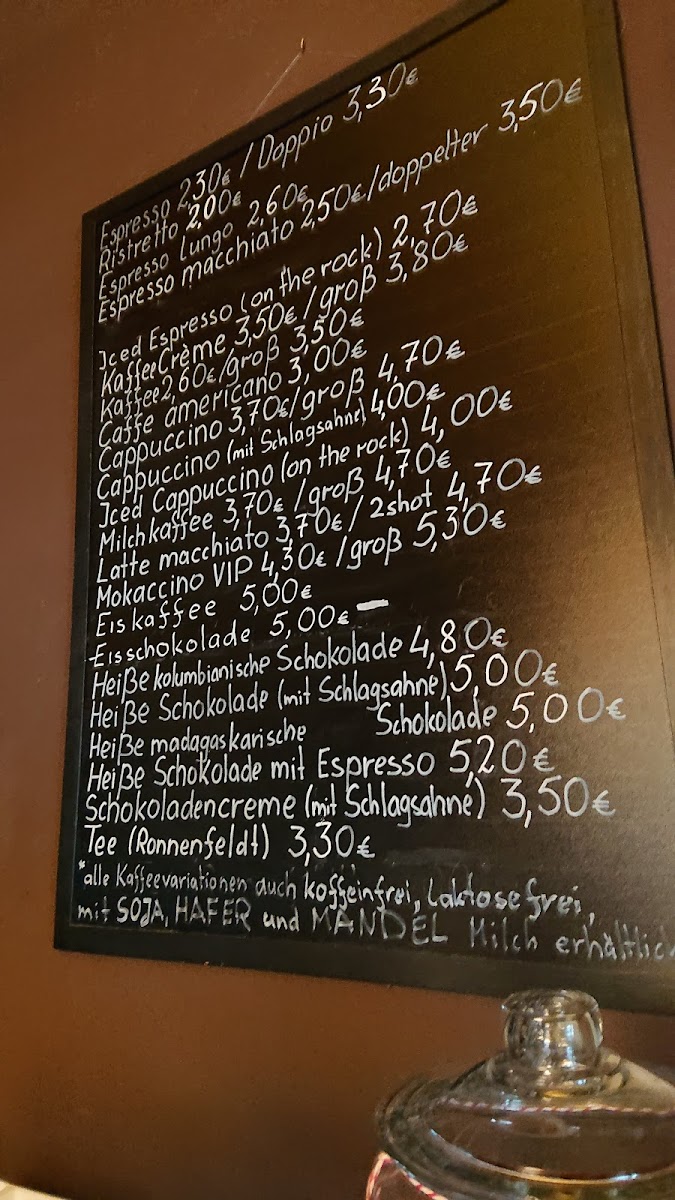 Espresso 2,30€ / Doppio 3,30€
Ristretto 2,00€
Espresso Lungo 2,60€
Espresso macchiato 2,50€/doppelter 3,50€
Iced Espresso (on the rock) 2,70€
Kaffee Crème 3,50€/groß 3,80€
Kaffee 2,60€/groß 3,50€
Caffe americano 3,00€
Cappuccino 3,70€/groß 4,70€
Cappuccino (mit Schlagsahne) 4,00€
Iced Cappuccino (on the rock) 4,00€
Milchkaffee 3,70€ /groß 4,70€
Latte macchiato 3,70€/ 2shot 4,70€
Mokaccino VIP 4,30€ /groß 5,30€
Eiskaffee 5,00€
Eisschokolade 5,00€
Heiße kolumbianische Schokolade 4,80€
Heiße Schokolade (mit Schlagsahne) 5,00€
Heiße madagaskarische Schokolade 5,00€
Heiße Schokolade mit Espresso 5,20€
Schokoladencreme (mit Schlagsahne) 3,50€
Tee (Ronnenfeldt) 3,30€
*alle Kaffeevariationen auch koffeinfrei, Laktosefrei,
mit SOJA, HAFER und MANDEL Milch erhältlich